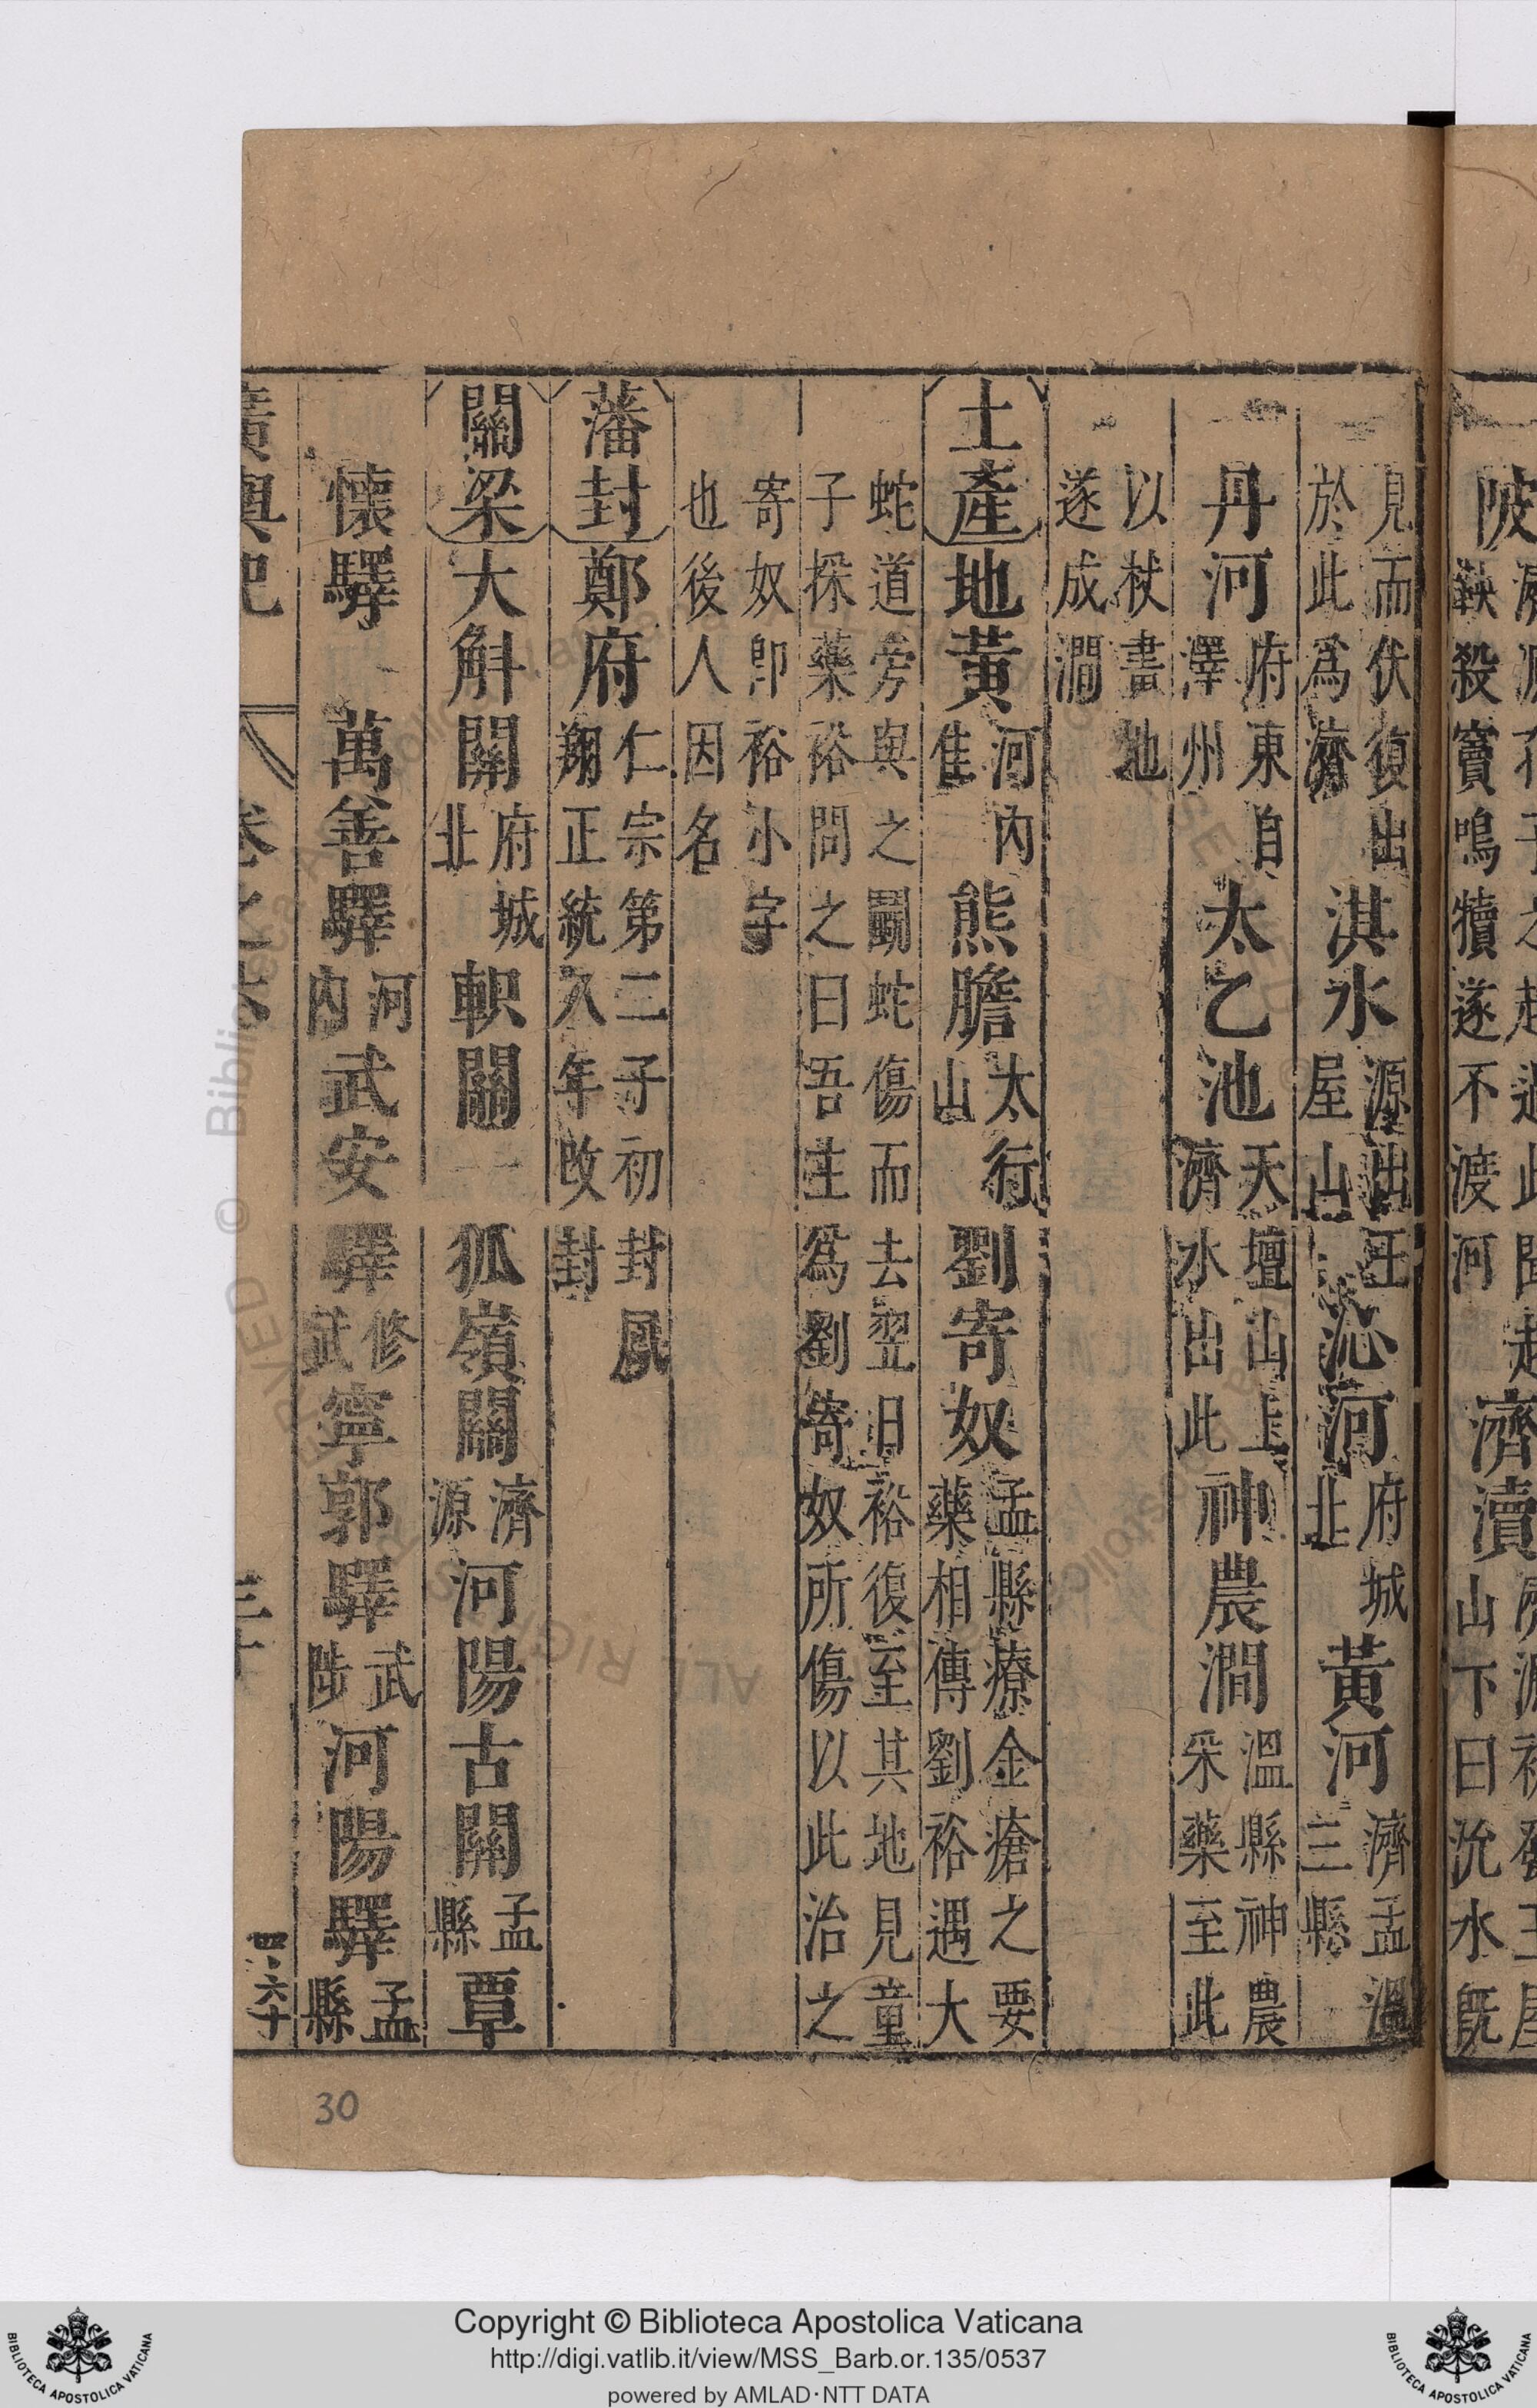 見而伏復出於此爲濟 淇水 源出王屋山 沁河 府城北 黃河 濟孟溫三縣
丹河 府東自澤州 太乙池 天壇山上濟水出此 神農澗 溫縣神農采藥至此
以杖畫地遂成澗
土產 地黃 河內佳 熊膽 太行山 劉寄奴 孟縣療金瘡之要藥相傳劉裕遇大
蛇道旁與之鬬蛇傷而去翌日裕復至其地見童子採藥裕問之曰吾主爲劉寄奴所傷以此治之
寄奴卽裕小字也後人因名
藩封 鄭府 仁宗第二子初封鳳翔正統八年改封
關梁 大斛關 府城北 軹關 狐嶺關 濟源 河陽古關 孟縣 覃
懷驛 萬善驛 河內 武安驛 修武 寧郭驛 武陟 河陽驛 孟縣
廣輿記 卷之六 三十
四·六十
30
陂
鞅殺竇鳴犢遂不渡河
濟瀆
山下曰沇水旣
Copyright © Biblioteca Apostolica Vaticana
http://digi.vatlib.it/view/MSS_Barb.or.135/0537
powered by AMLAD·NTT DATA
BIBLIOTECA APOSTOLICA VATICANA
BIBLIOTECA APOSTOLICA VATICANA